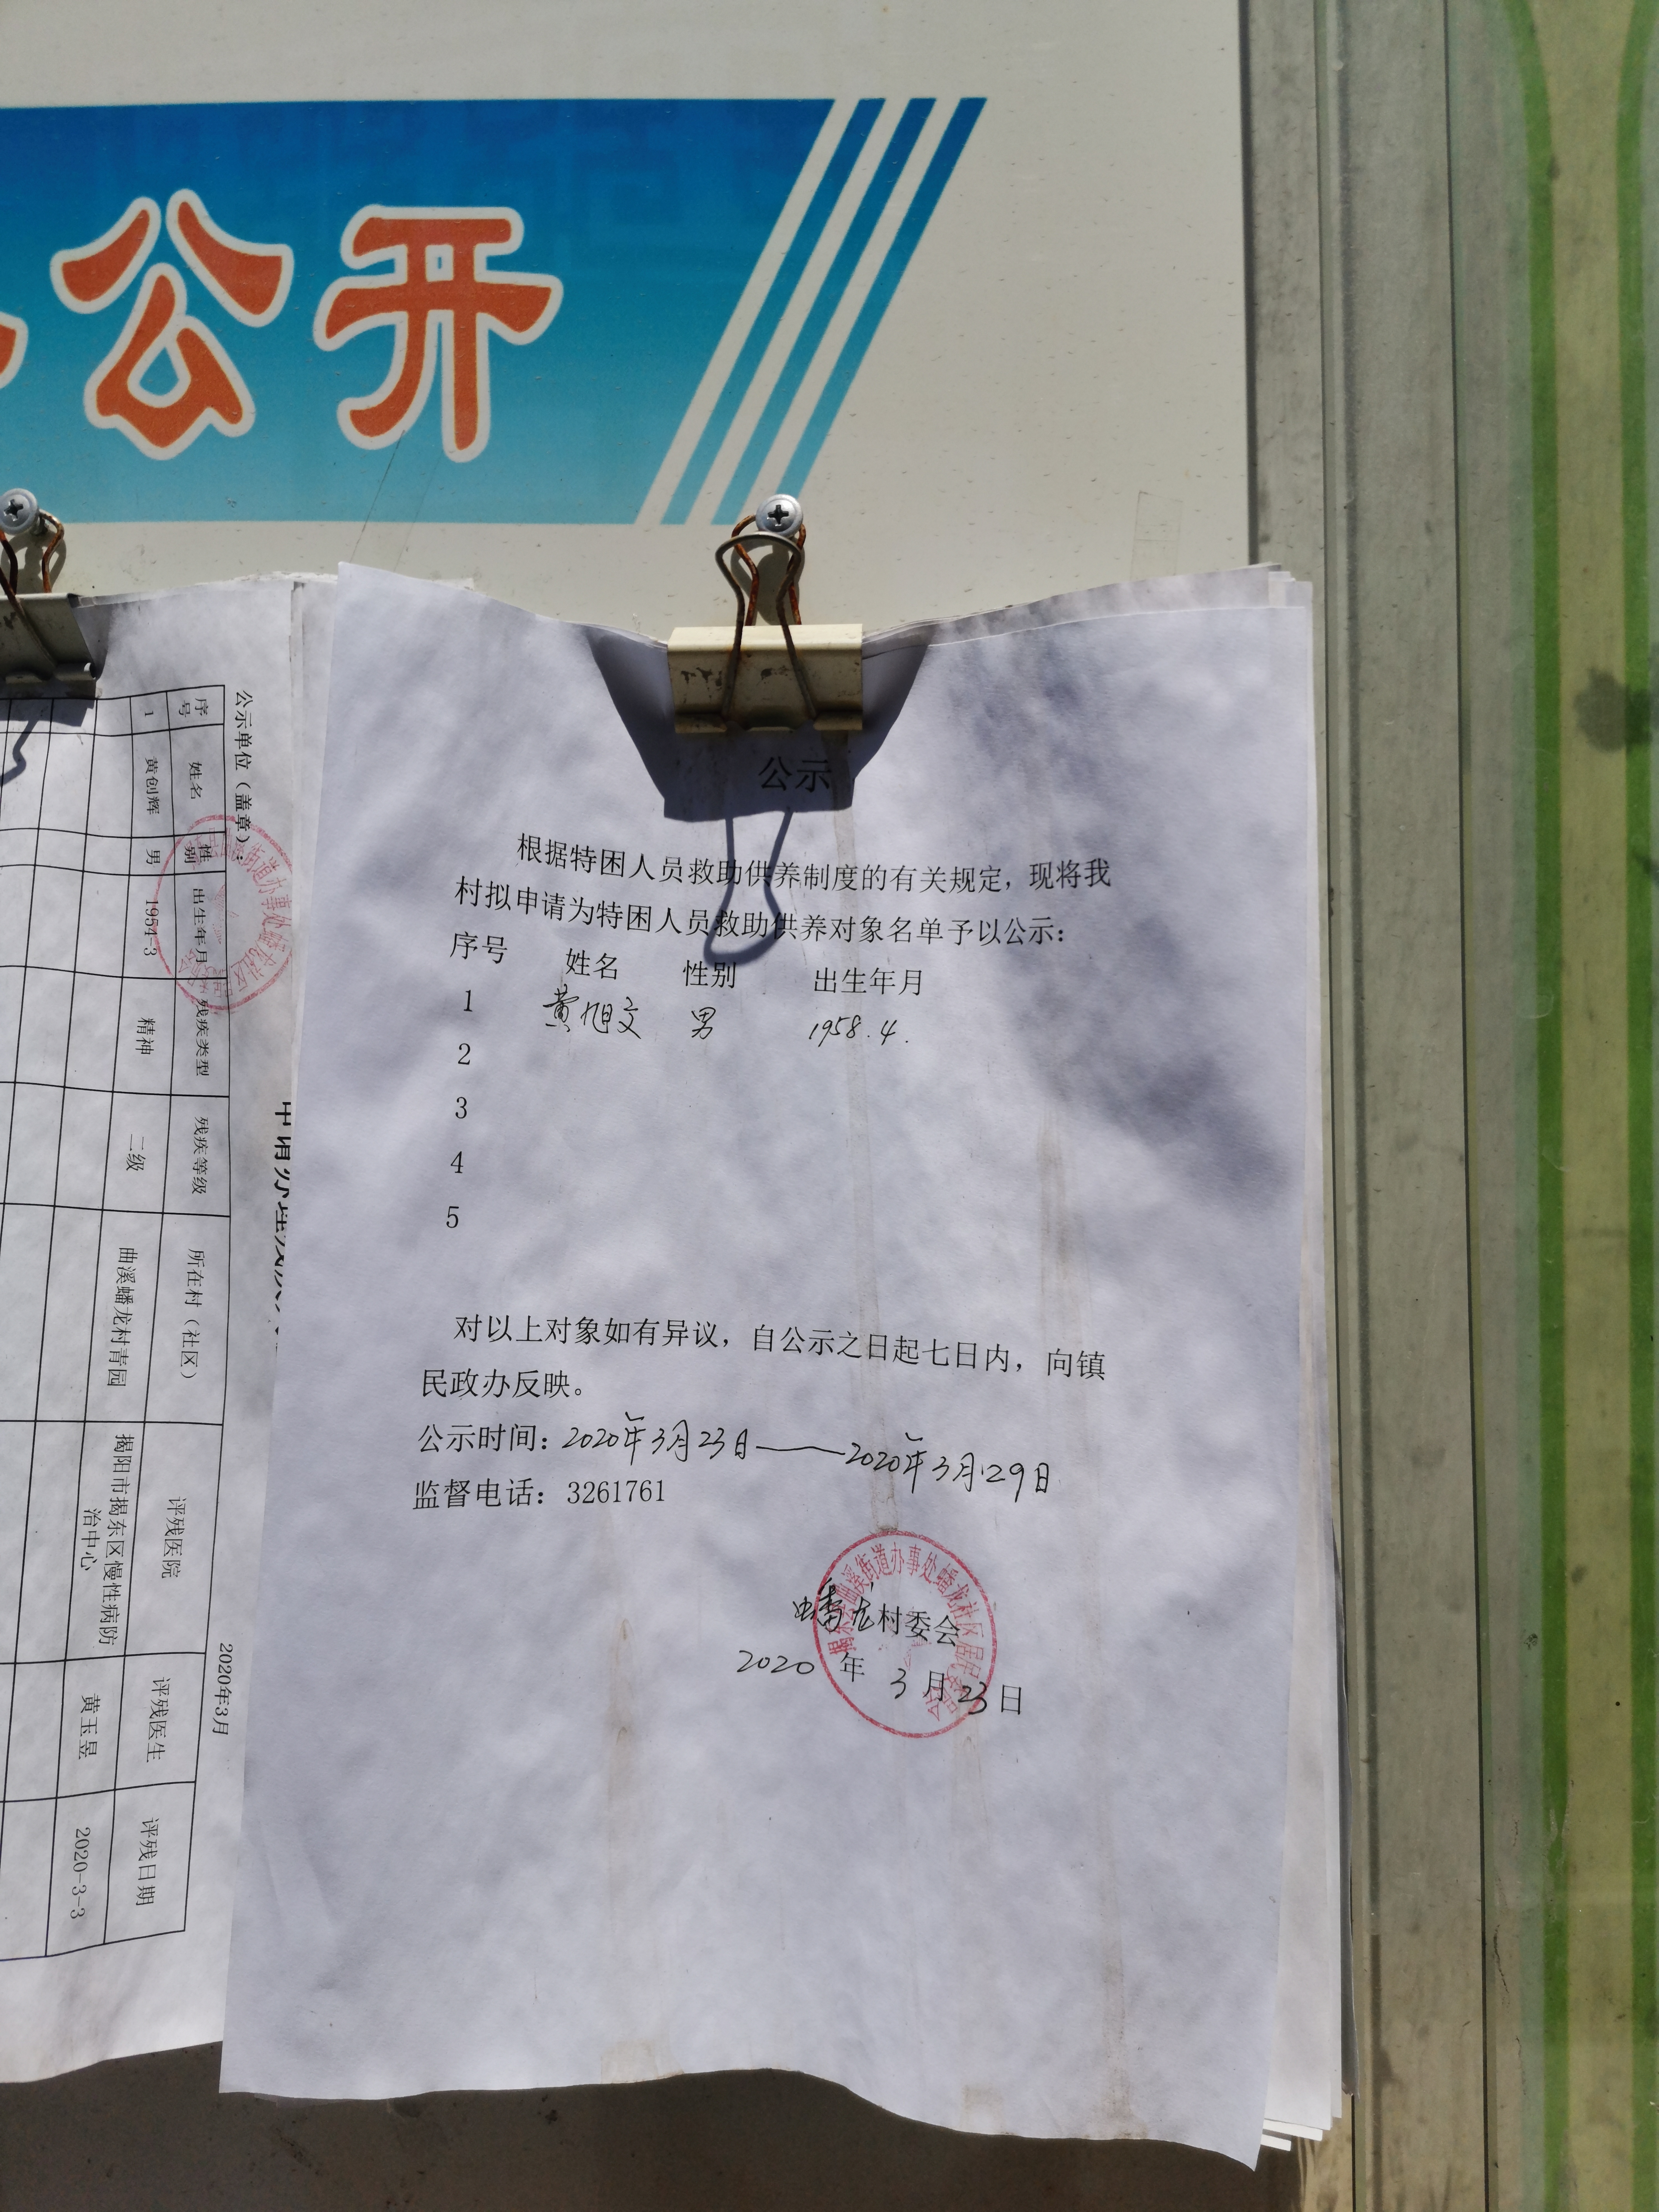 公开
公示
根据特困人员救助供养制度的有关规定，现将我
村拟申请为特困人员救助供养对象名单予以公示：
序号 姓名 性别 出生年月
1 黄旭文 男 1958.4.
2
3
4
5
对以上对象如有异议，自公示之日起七日内，向镇
民政办反映。
公示时间：2020年3月23日——2020年3月29日
监督电话：3261761
蟠龙村委会
2020年3月23日
曲溪街道办事处蟠龙社区居民委员会
公示单位（盖章）：
2020年3月
序号 姓名 性别 出生年月 残疾类型 残疾等级 所在村（社区） 评残医院 评残医生 评残日期
1 黄创辉 男 1954-3 精神 二级 曲溪蟠龙村青园 揭阳市揭东区慢性病防治中心 黄玉昱 2020-3-3